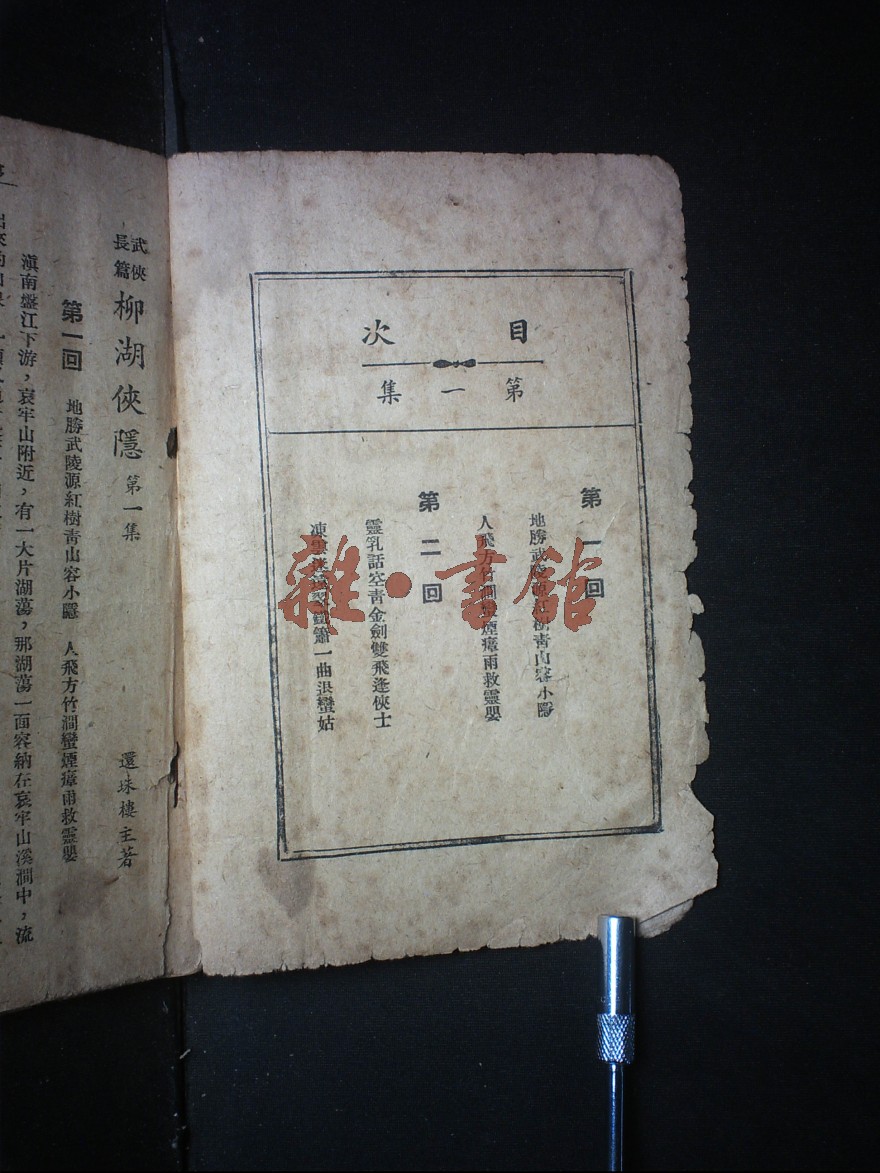 目次
第一集
第一回
地勝武陵源紅樹青山容小隱
人飛方竹澗蠻煙瘴雨救靈嬰
第二回
靈乳話空青金劍雙飛逢俠士
凍雲迷 鐵簫一曲退蠻姑
雜·書館
武俠長篇
柳湖俠隱 第一集
還珠樓主著
第一回 地勝武陵源紅樹青山容小隱 人飛方竹澗蠻煙瘴雨救靈嬰
滇南盤江下游,哀牢山附近,有一大片湖蕩,那湖蕩一面容納在哀牢山溪澗中,流